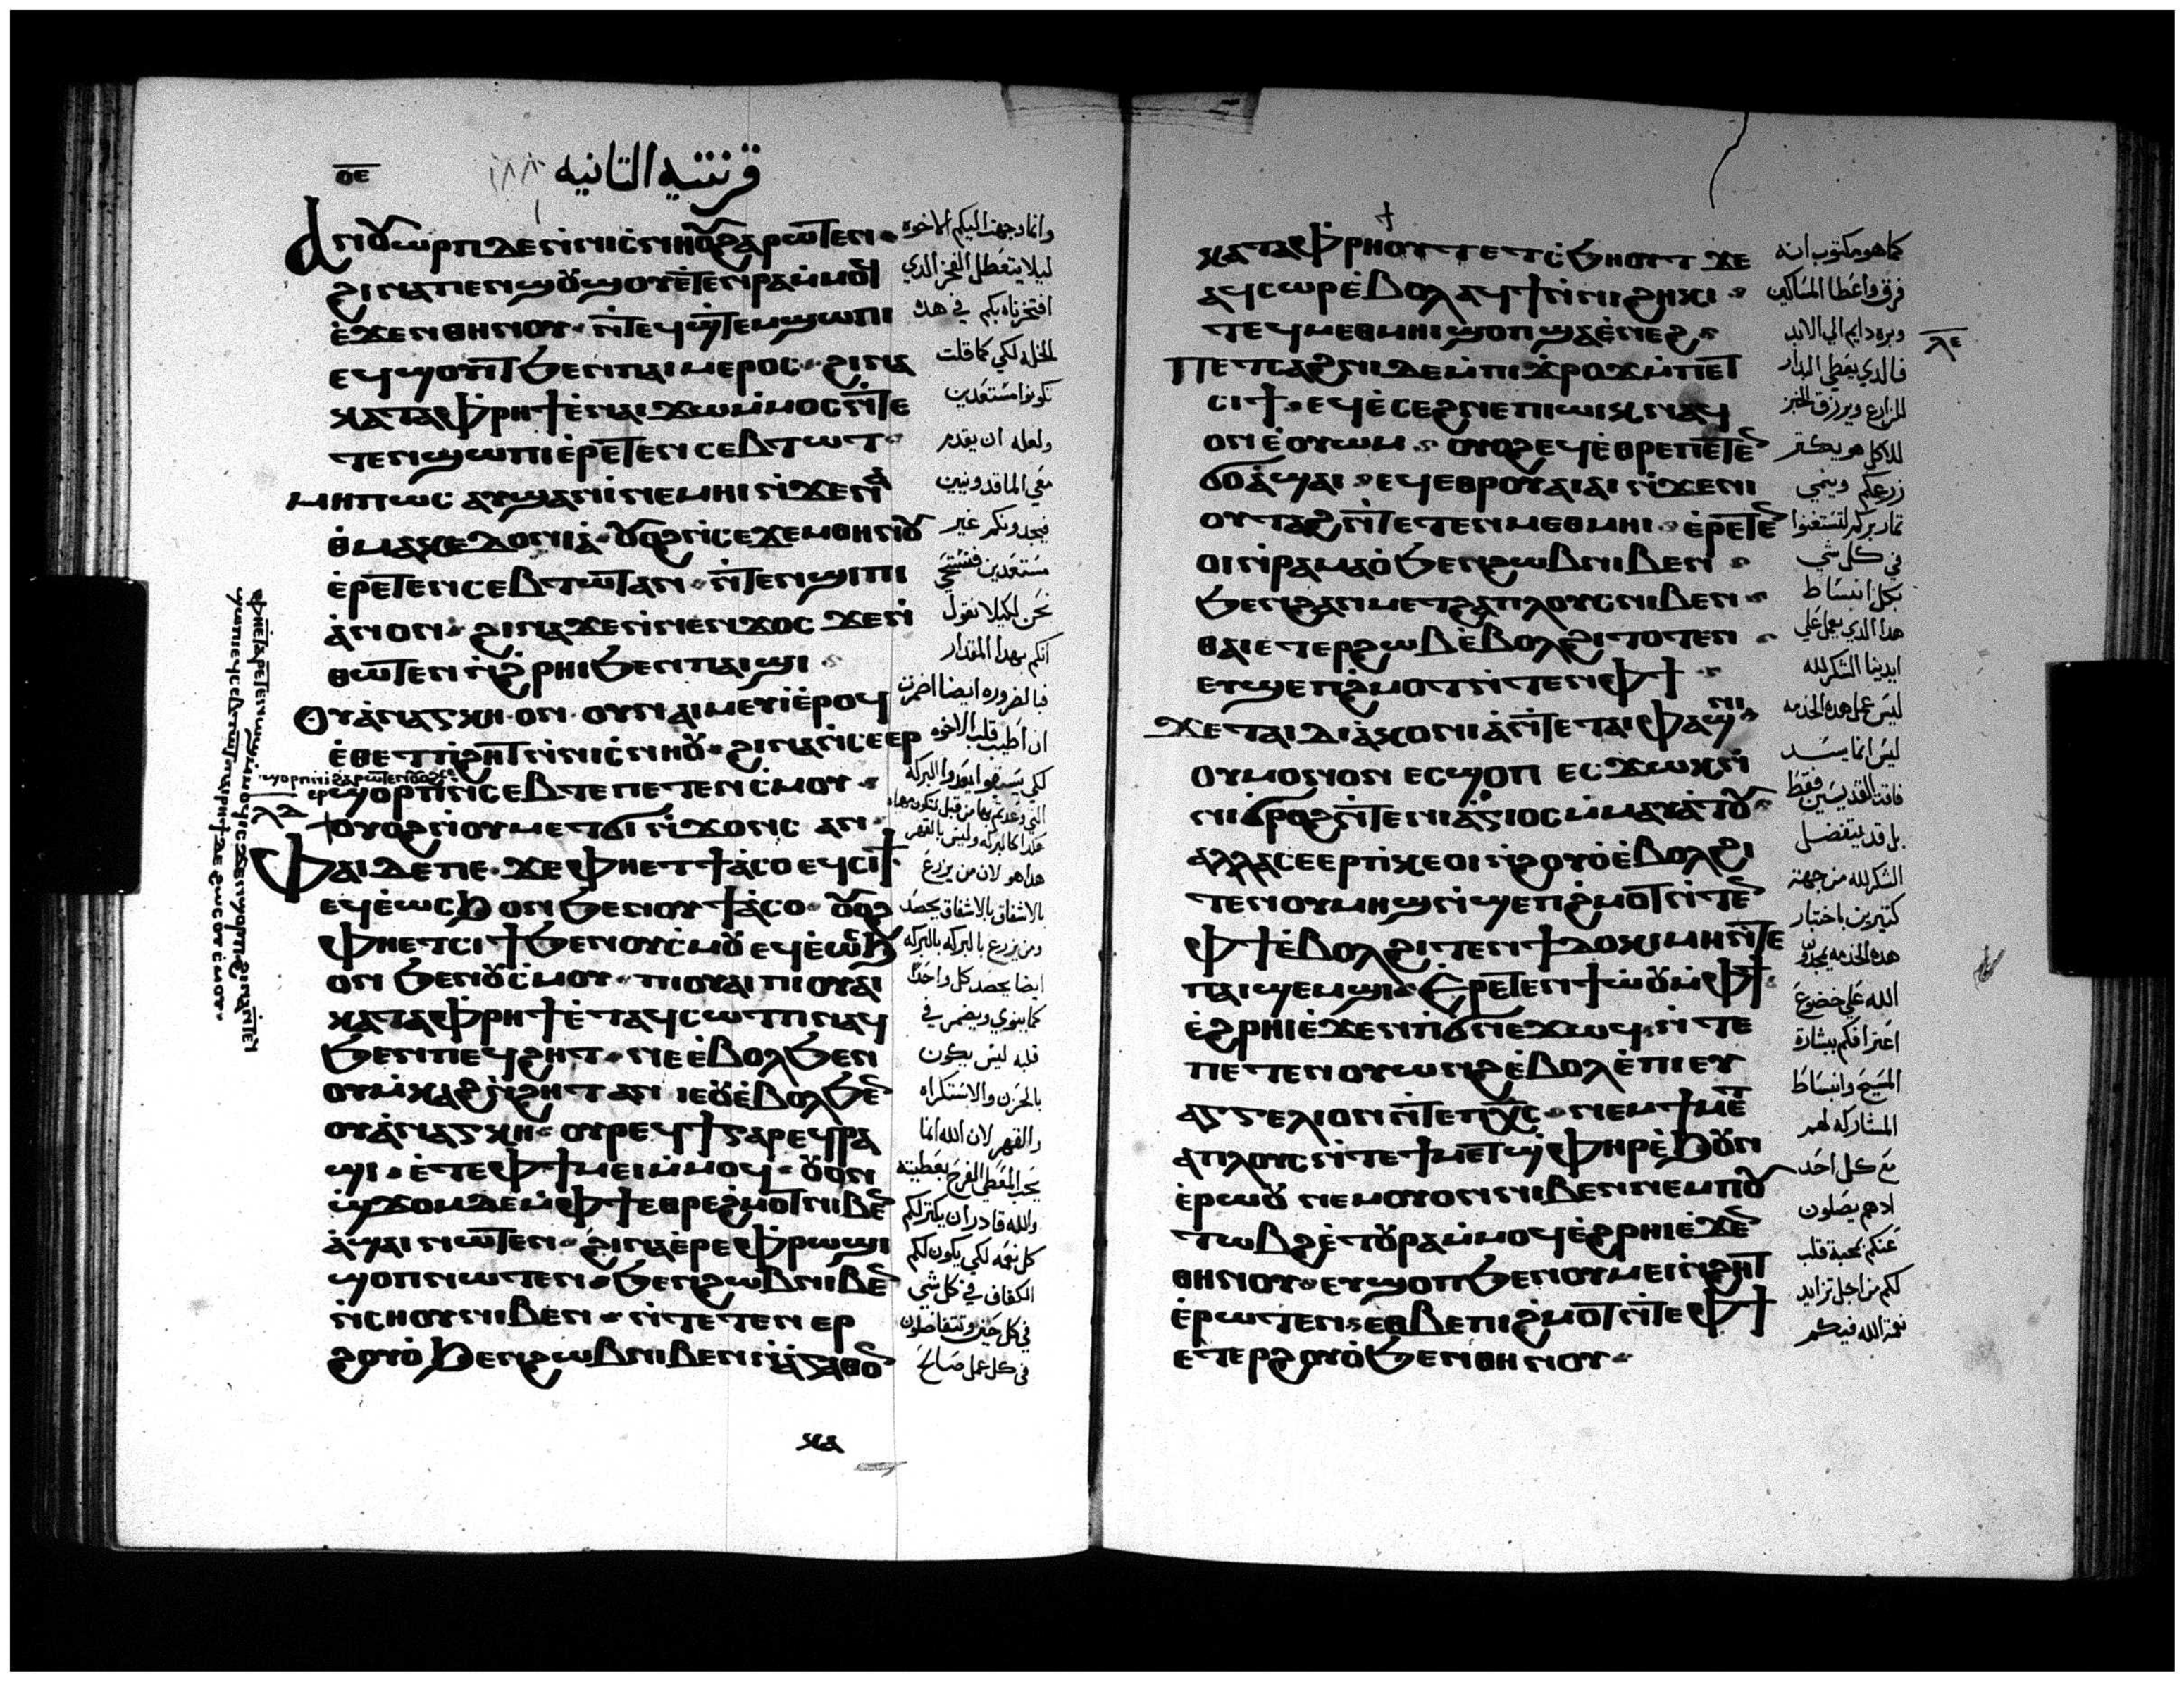 ⲟⲉ
قرنتيه التانيه
١٨٨
ⲁⲓⲟⲩⲱⲣⲡ ⲇⲉ ⲛⲛⲓⲥⲛⲏⲟⲩ ϩⲁⲣⲱⲧⲉⲛ
ϩⲓⲛⲁ ⲡⲉⲛϣⲟⲩϣⲟⲩ ⲉⲧⲉⲛⲣⲁ ⲙⲙⲟϥ
ⲉϫⲉⲛ ⲑⲏⲛⲟⲩ ⲛⲧⲉϥϣⲧⲉⲙϣⲱⲡⲓ
ⲉϥϣⲟⲩⲓⲧ ϧⲉⲛ ⲡⲁⲓⲙⲉⲣⲟⲥ ϩⲓⲛⲁ
ⲕⲁⲧⲁ ⲫⲣⲏϯ ⲉⲛⲁⲓϫⲱ ⲙⲙⲟⲥ ⲛⲧⲉ
ⲧⲉⲛϣⲱⲡⲓ ⲉⲣⲉⲧⲉⲛⲥⲉⲃⲧⲱⲧ
ⲙⲏⲡⲱⲥ ⲁⲩϣⲁⲛⲓ ⲛⲉⲙⲏⲓ ⲛϫⲉ ϩⲁⲛ
ⲑⲙⲁⲕⲉⲇⲟⲛⲓⲁ ⲟⲩⲟϩ ⲛⲥⲉϫⲉⲙ ⲑⲏⲛⲟⲩ
ⲉⲣⲉⲧⲉⲛⲥⲉⲃⲧⲱⲧ ⲁⲛ ⲛⲧⲉⲛϣⲓⲡⲓ
ⲁⲛⲟⲛ ϩⲓⲛⲁ ϫⲉ ⲛⲛⲉⲛϫⲟⲥ ϫⲉ ⲛ
ⲑⲱⲧⲉⲛ ⲛϩⲣⲏⲓ ϧⲉⲛ ⲡⲁⲓϣⲓ
ⲟⲩⲁⲛⲁⲅⲕⲏ ⲟⲛ ⲟⲩⲛ ⲁⲓⲙⲉⲩⲓ ⲉⲣⲟϥ
ⲉⲑⲉⲧ ⲡϩⲏⲧ ⲛⲛⲓⲥⲛⲏⲟⲩ ϩⲓⲛⲁ ⲛⲥⲉⲉⲣ
ϣⲟⲣⲡ ⲛⲥⲉⲃⲧⲉ ⲡⲉⲧⲉⲛⲥⲙⲟⲩ
ⲟⲩⲟϩ ⲛⲟⲩⲙⲉⲧϭⲓ ⲛϫⲟⲛⲥ ⲁⲛ
ⲗⲇ
ⲫⲁⲓ ⲇⲉ ⲡⲉ ϫⲉ ⲫⲏⲉⲧϯⲁⲥⲟ ⲉϥⲥⲓϯ
ⲉϥⲉⲱⲥϧ ⲟⲛ ϧⲉⲛ ⲟⲩϯⲁⲥⲟ ⲟⲩⲟϩ
ⲫⲏⲉⲧⲥⲓϯ ϧⲉⲛ ⲟⲩⲥⲙⲟⲩ ⲉϥⲉⲱⲥϧ
ⲟⲛ ϧⲉⲛ ⲟⲩⲥⲙⲟⲩ ⲡⲓⲟⲩⲁⲓ ⲡⲓⲟⲩⲁⲓ
ⲕⲁⲧⲁ ⲫⲣⲏϯ ⲉⲧⲁϥⲥⲱⲧⲡ ⲛⲁϥ
ϧⲉⲛ ⲡⲉϥϩⲏⲧ ⲛⲉ ⲉⲃⲟⲗ ϧⲉⲛ
ⲟⲩⲙⲕⲁϩ ⲛϩⲏⲧ ⲁⲛ ⲓⲉ ⲟⲩⲉⲃⲟⲗ ϧⲉⲛ
ⲟⲩⲁⲛⲁⲅⲕⲏ ⲟⲩⲣⲉϥϯ ⲅⲁⲣ ⲉϥⲣⲁ
ϣⲓ ⲉⲧⲉ ⲫϯ ⲙⲉⲓ ⲙⲙⲟϥ ⲟⲩⲟⲛ
ϣϫⲟⲙ ⲇⲉ ⲙⲫϯ ⲉⲑⲣⲉ ϩⲙⲟⲧ ⲛⲓⲃⲉⲛ
ⲁϣⲁⲓ ⲛⲱⲧⲉⲛ ϩⲓⲛⲁ ⲉⲣⲉ ⲫⲣⲱϣⲓ
ϣⲟⲡ ⲛⲱⲧⲉⲛ ϧⲉⲛ ϩⲱⲃ ⲛⲓⲃⲉⲛ
ⲛⲥⲏⲟⲩ ⲛⲓⲃⲉⲛ ⲛⲧⲉⲧⲉⲛ ⲉⲣ
ϩⲟⲩⲟ ϧⲉⲛ ϩⲱⲃ ⲛⲓⲃⲉⲛ ⲛⲁⲅⲁⲑⲟⲛ
ⲕⲁ
وانما وجهت اليكم الاخوه
ليلا يتعطل الفخر الدي
افتخرناه بكم في هده
الخله لكي كما قلت
تكونوا مستعدين
ولعله ان يقدم
معي الماقدونيين
فيجدونكم غير
مستعدين فنستحي
نحن لكيلا نقول
انكم بهدا المقدار
فبالضروره ايضا اضمرت
ان اطيب قلب الاخوه
هدا هو لان من يزرع
بالاشفاق بالاشفاق يحصد
ومن يزرع بالبركه بالبركه
ايضا يحصد كل واحد
كما ينوي ويضمر في
قلبه ليس يكون
بالحزن والاستكراه
والقهر لان الله انما
يحب المعطي الفرح بعطيته
والله قادر ان يكتر لكم
كل نعمه لكي يكون لكم
الكفاف في كل شي
في كل حين وتتفاضلون
في كل عمل صالح
ⲕⲁⲧⲁ ⲫⲣⲏⲟⲩⲧ ⲧⲉⲧⲥϧⲏⲟⲩⲧ ϫⲉ
ⲁϥⲥⲱⲣ ⲉⲃⲟⲗ ⲁϥϯ ⲛⲛⲓϩⲏⲕⲓ
ⲧⲉϥⲙⲉⲑⲙⲏⲓ ϣⲟⲡ ϣⲁ ⲉⲛⲉϩ
ⲗⲉ
ⲡⲉⲧⲥⲁϩⲛⲓ ⲇⲉ ⲙⲡⲓϫⲣⲟϫ ⲙⲡⲉⲧ
ⲥⲓϯ ⲉϥⲉⲥⲉϩⲛⲉ ⲡⲓⲱⲓⲕ ⲛⲁϥ
ⲟⲛ ⲉⲟⲩⲱⲙ ⲟⲩⲟϩ ⲉϥⲉⲑⲣⲉ ⲡⲉⲧⲉⲛ
ϭⲟ ⲁϣⲁⲓ ⲉϥⲉⲑⲣⲟⲩⲁⲓⲁⲓ ⲛϫⲉ ⲛⲓ
ⲟⲩⲧⲁϩ ⲛⲧⲉ ⲧⲉⲧⲉⲛⲙⲉⲑⲙⲏⲓ ⲉⲣⲉⲧⲉⲛ
ⲟⲓ ⲛⲣⲁⲙⲁⲟ ϧⲉⲛ ϩⲱⲃ ⲛⲓⲃⲉⲛ
ϧⲉⲛ ϩⲁⲛⲙⲉⲧϩⲁⲡⲗⲟⲩⲥ ⲛⲓⲃⲉⲛ
ⲑⲁⲓ ⲉⲧⲉⲣϩⲱⲃ ⲉⲃⲟⲗϩⲓⲧⲟⲧⲉⲛ
ⲉⲩϣⲉⲡϩⲙⲟⲧ ⲛⲧⲉⲛ ⲫϯ
ϫⲉ ⲧⲁⲓⲇⲓⲁⲕⲟⲛⲓⲁ ⲛⲧⲉ ⲧⲁⲓⲫⲁϣⲛⲓ
ⲟⲩⲙⲟⲛⲟⲛ ⲉⲥϣⲟⲡ ⲉⲥϫⲱⲕ ⲛ
ⲛⲓϭⲣⲟϩ ⲛⲧⲉ ⲛⲓⲁⲅⲓⲟⲥ ⲙⲙⲁⲩⲁⲧⲟⲩ
ⲁⲗⲗⲁ ⲥⲉⲉⲣⲡⲕⲉⲟⲓ ⲛϩⲟⲩⲟ ⲉⲃⲟⲗϩⲓ
ⲧⲉⲛ ⲟⲩⲙⲏϣ ⲛϣⲉⲡϩⲙⲟⲧ ⲛⲧⲉⲛ
ⲫϯ ⲉⲃⲟⲗϩⲓⲧⲉⲛ ϯⲇⲟⲕⲓⲙⲏ ⲛⲧⲉ
ⲡⲁⲓϣⲉⲙϣⲓ ⲉⲣⲉⲧⲉⲛϯⲱⲟⲩ ⲙⲫϯ
ⲉϩⲣⲏⲓ ⲉϫⲉⲛ ⲡϭⲛⲉϫⲱϥ ⲛⲧⲉ
ⲡⲉⲧⲉⲛⲟⲩⲱⲛϩ ⲉⲃⲟⲗ ⲉⲡⲓⲉⲩ
ⲁⲅⲅⲉⲗⲓⲟⲛ ⲛⲧⲉ ⲡⲭⲥ ⲛⲉⲙ ϯⲙⲉⲧ
ⲁⲡⲗⲟⲩⲥ ⲛⲧⲉ ϯⲙⲉⲧϣⲫⲏⲣ ⲉϧⲟⲩⲛ
ⲉⲣⲱⲟⲩ ⲛⲉⲙ ⲟⲩⲟⲛ ⲛⲓⲃⲉⲛ ⲛⲉⲙ ⲡⲟⲩ
ⲧⲱⲃϩ ⲉⲧⲟⲩⲣⲁ ⲙⲙⲟϥ ⲉϩⲣⲏⲓ ⲉϫⲉⲛ
ⲑⲏⲛⲟⲩ ⲉⲩϣⲟⲡ ϧⲉⲛ ⲟⲩⲙⲉⲓ ⲛϩⲏⲧ
ⲉⲣⲱⲧⲉⲛ ⲉⲑⲃⲉ ⲡⲓϩⲙⲟⲧ ⲛⲧⲉ ⲫϯ
ⲉⲧⲉⲣϩⲟⲩⲟ ϧⲉⲛ ⲑⲏⲛⲟⲩ
كما هو مكتوب انه
فرق واعطا المساكين
وبره دايم الي الابد
فالدي يعطي البدار
للزارع ويرزق الخبز
للاكل هو يكتر
زرعكم وينمي
تمار بركم لتستغنوا
في كل شي
بكل انبساط
هدا الدي يعمل علي
ايدينا الشكر لله
ليس عمل هده الخدمه
ليس انما يسد
فاقت القديسين فقط
بل قد يتفضل
الشكر لله من جهته
كتيرين باختبار
هده الخدمه يمجدون
الله علي خضوع
اعترافكم ببشارة
المسيح وانبساط
المشاركه لهم
مع كل احد
لانهم يصلون
عنكم بمحبة قلب
لكم من اجل تزايد
نعمة الله فيكم